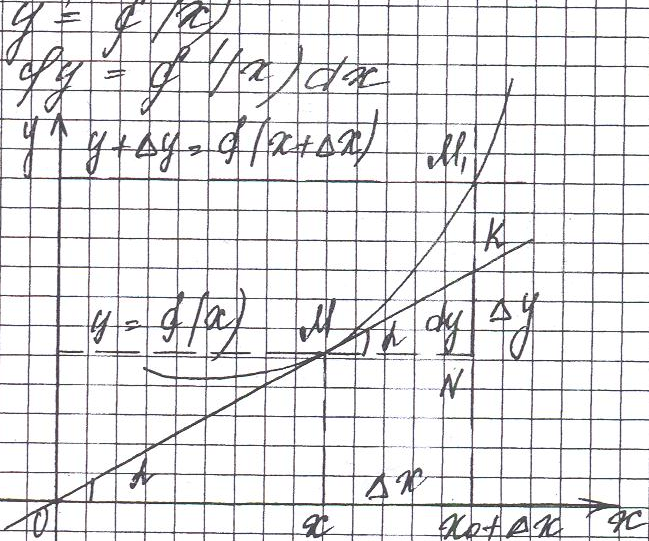 y = f(x)
dy = f'(x) dx
y
y + Δy = f(x + Δx)
M₁
K
y = f(x)
M
α
dy
Δy
N
α
Δx
0
x
x₀ + Δx
x